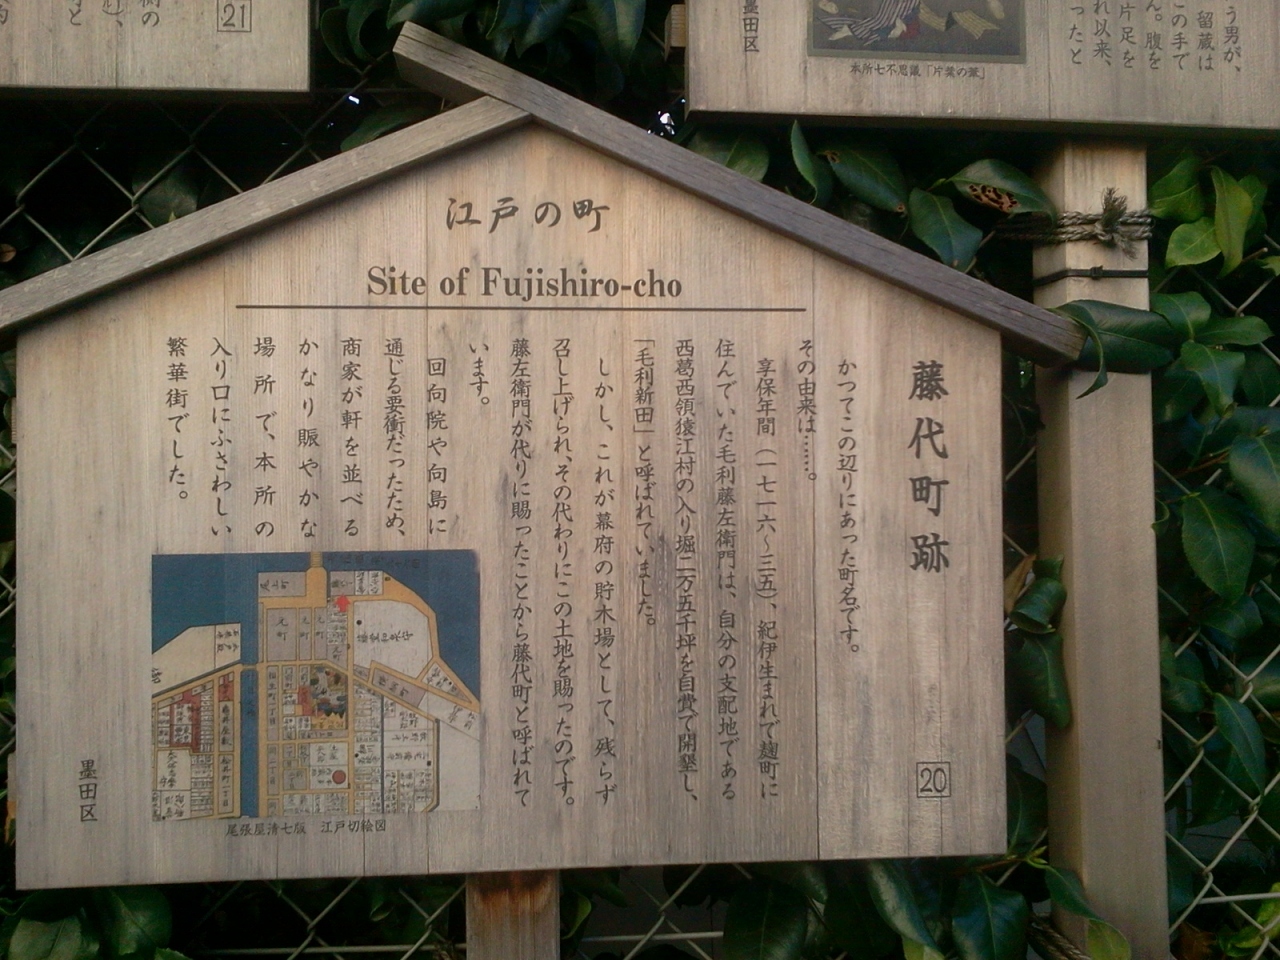 江戸の町
Site of Fujishiro-cho
藤代町跡
20
かつてこの辺りにあった町名です。
その由来は……。
享保年間(一七一六〜三五)、紀伊生まれで麹町に
住んでいた毛利藤左衛門は、自分の支配地である
西葛西領猿江村の入り堀二万五千坪を自費で開墾し、
「毛利新田」と呼ばれていました。
しかし、これが幕府の貯木場として、残らず
召し上げられ、その代わりにこの土地を賜ったのです。
藤左衛門が代りに賜ったことから藤代町と呼ばれて
います。
回向院や向島に
通じる要衝だったため、
商家が軒を並べる
かなり賑やかな
場所で、本所の
入り口にふさわしい
繁華街でした。
尾張屋清七版 江戸切絵図
墨田区
21
墨田区
本所七不思議「片葉の葦」
う男が、
留蔵は
この手で
ん。腹を
片足を
れ以来、
ったと